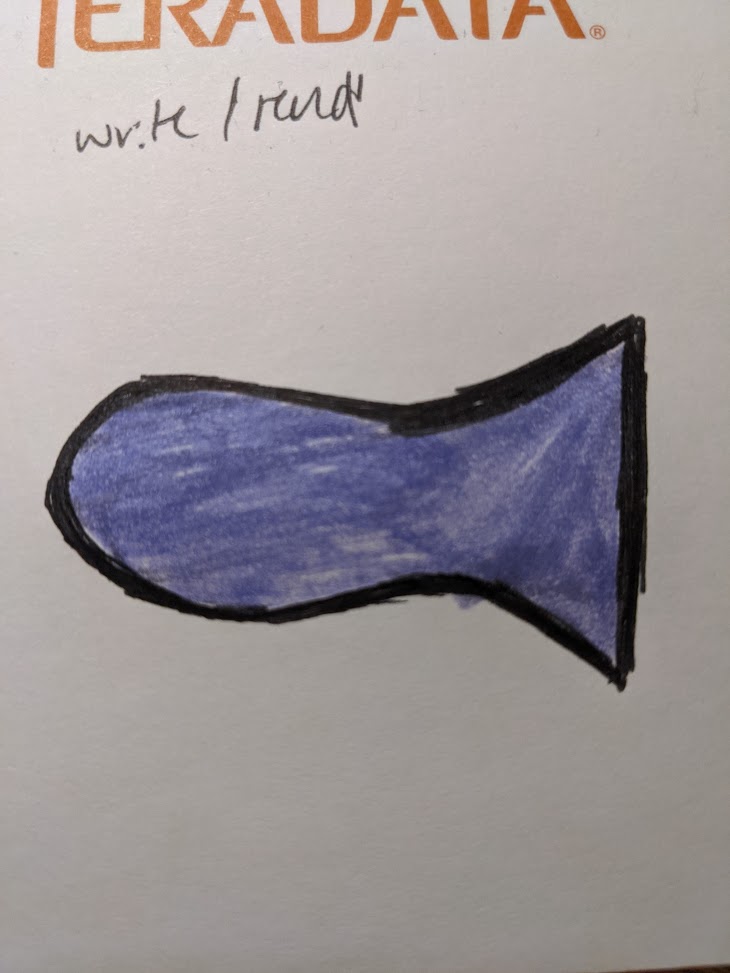 TERADATA®
write / read"